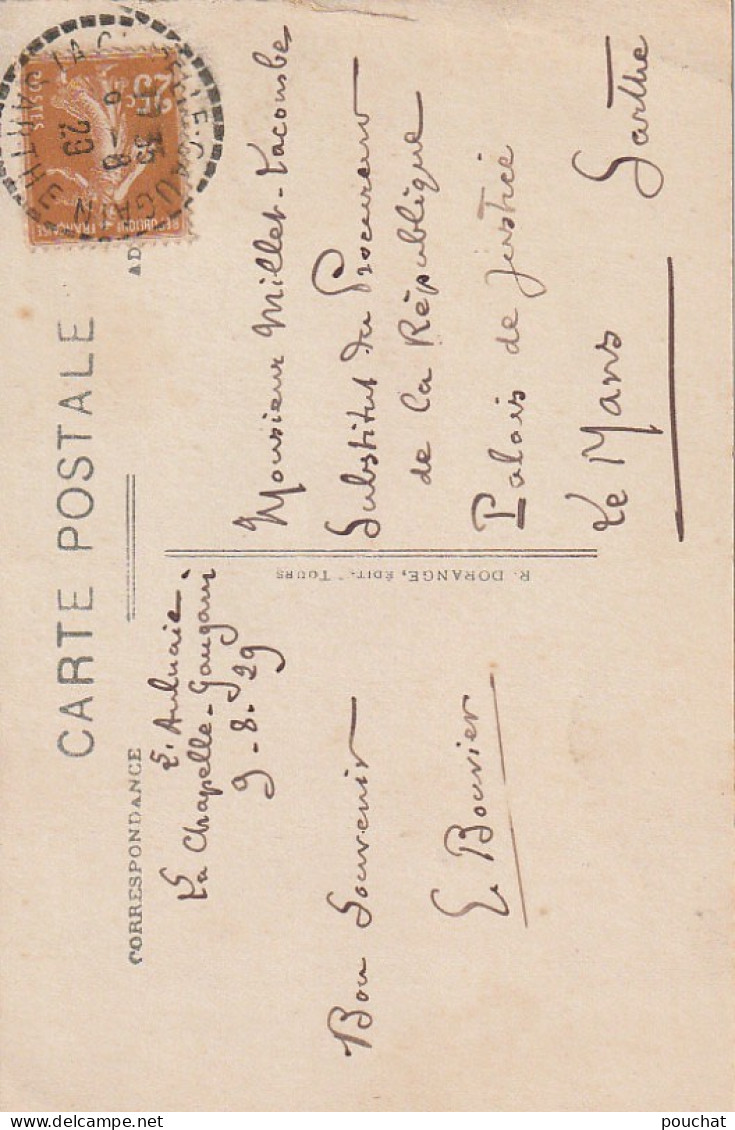 CARTE POSTALE
CORRESPONDANCE
L'Aulnaie
La Chapelle-Gaugain
9-8-29
Bon Souvenir
E Bouvier
R. DORANGE, ÉDIT. TOURS
AD
25c
POSTES
REPUBLIQUE FRANÇAISE
LA CHAPELLE-GAUGAIN
SARTHE
9-8
29
Monsieur Millet-Lacombe
Substitut du Procureur
de la République
Palais de Justice
Le Mans
Sarthe
pouchat